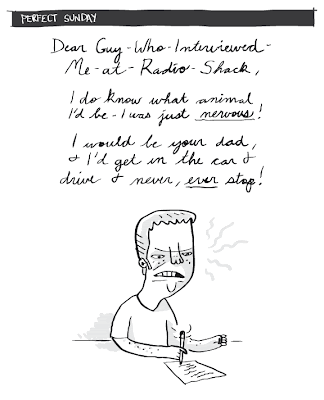 PERFECT SUNDAY
Dear Guy-Who-Interviewed-
Me-at-Radio-Shack,
I do know what animal
I'd be - I was just nervous!
I would be your dad,
& I'd get in the car &
drive & never, ever stop!